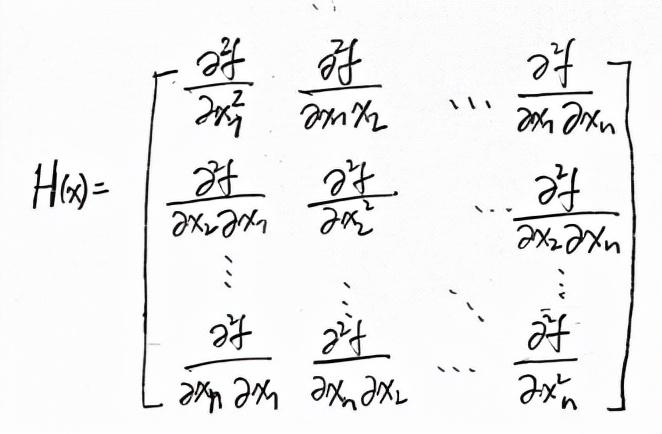 H(x) = \begin{bmatrix} \frac{\partial^2 f}{\partial x_1^2} & \frac{\partial^2 f}{\partial x_1 x_2} & \cdots & \frac{\partial^2 f}{\partial x_1 \partial x_n} \\
\frac{\partial^2 f}{\partial x_2 \partial x_1} & \frac{\partial^2 f}{\partial x_2^2} & \cdots & \frac{\partial^2 f}{\partial x_2 \partial x_n} \\
\vdots & \vdots & \ddots & \vdots \\
\frac{\partial^2 f}{\partial x_n \partial x_1} & \frac{\partial^2 f}{\partial x_n \partial x_2} & \cdots & \frac{\partial^2 f}{\partial x_n^2} \end{bmatrix}